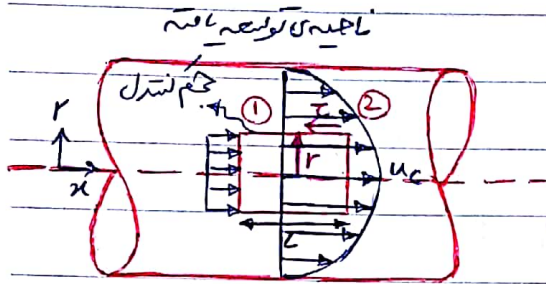 ناحیه‌ی توسعه یافته
حجم کنترل
① ②
r τ
r
x u_c
L